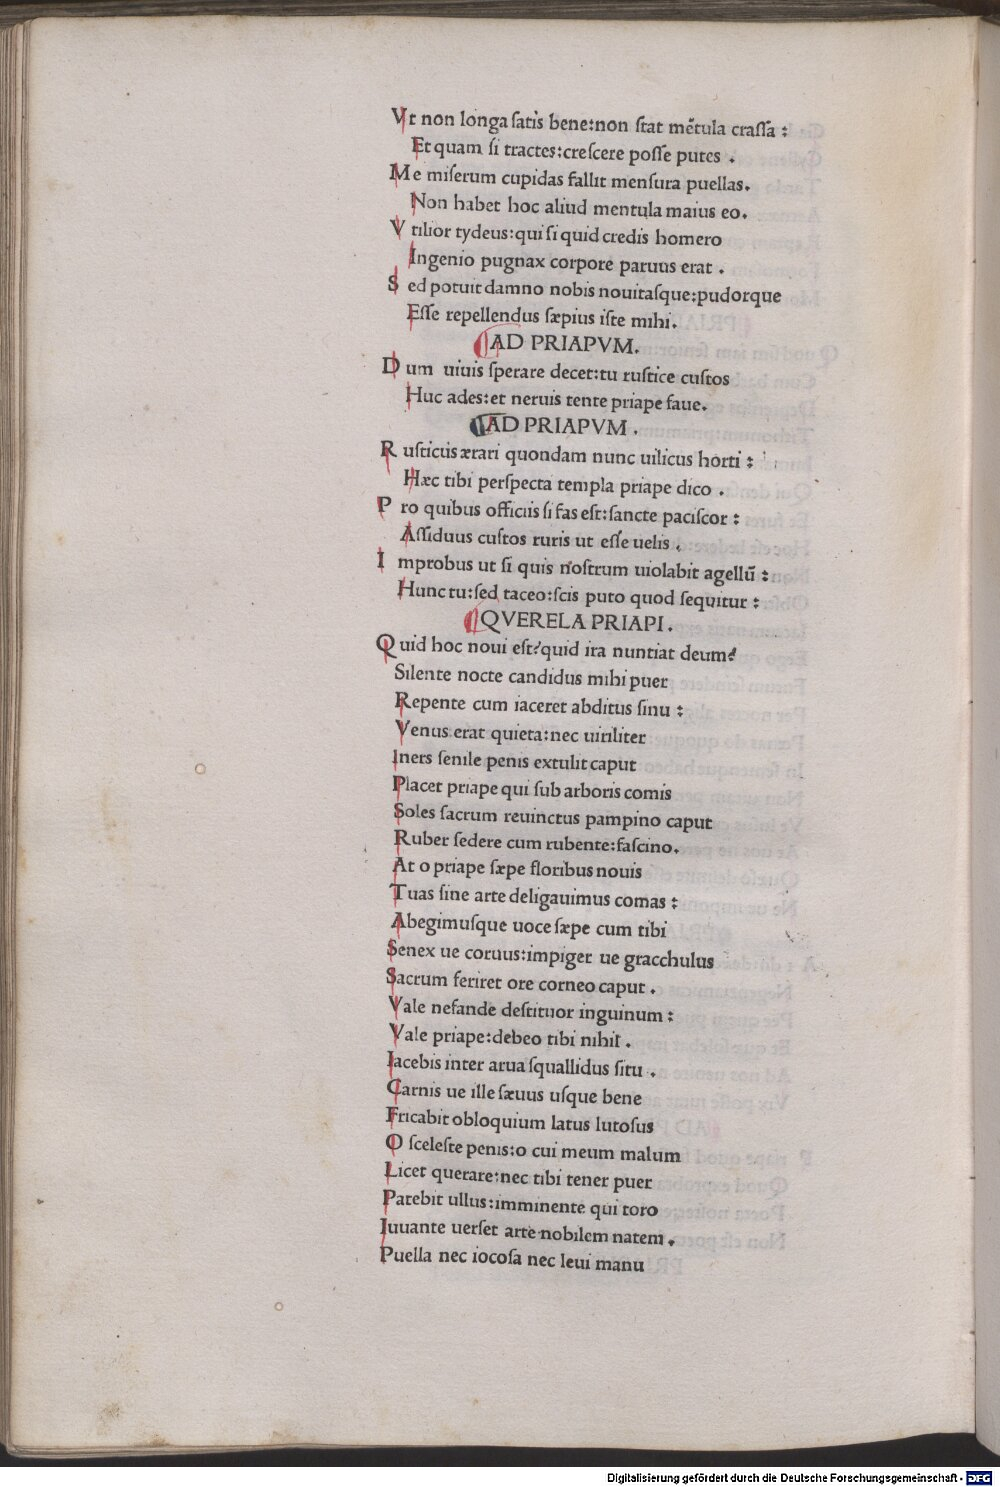 Vt non longa ſatis bene:non ſtat mētula craſſa :
Et quam ſi tractes:creſcere poſſe putes .
Me miſerum cupidas fallit menſura puellas.
Non habet hoc aliud mentula maius eo.
V tilior tydeus:qui ſi quid credis homero
Ingenio pugnax corpore paruus erat .
S ed potuit damno nobis nouitaſque:pudorque
Eſſe repellendus ſæpius iſte mihi.
AD PRIAPVM.
D um uiuis ſperare decet:tu ruſtice cuſtos
Huc ades:et neruis tente priape faue.
AD PRIAPVM .
R uſticus ærari quondam nunc uilicus horti :
Hæc tibi perſpecta templa priape dico .
P ro quibus officiis ſi fas eſt:ſancte paciſcor :
Aſſiduus cuſtos ruris ut eſſe uelis .
I mprobus ut ſi quis noſtrum uiolabit agellū :
Hunc tu:ſed taceo:ſcis puto quod ſequitur :
QVERELA PRIAPI .
Quid hoc noui eſt?quid ira nuntiat deum?
Silente nocte candidus mihi puer
Repente cum iaceret abditus ſinu :
Venus erat quieta:nec uiriliter
Iners ſenile penis extulit caput
Placet priape qui ſub arboris comis
Soles ſacrum reuinctus pampino caput
Ruber ſedere cum rubente:faſcino.
At o priape ſæpe floribus nouis
Tuas ſine arte deligauimus comas :
Abegimuſque uoce ſæpe cum tibi
Senex ue coruus:impiger ue gracchulus
Sacrum feriret ore corneo caput .
Vale nefande deſtituor inguinum :
Vale priape:debeo tibi nihil .
Iacebis inter arua ſquallidus ſitu .
Carnis ue ille ſæuus uſque bene
Fricabit obloquium latus lutoſus
O ſceleſte penis:o cui meum malum
Licet querare:nec tibi tener puer
Patebit ullus:imminente qui toro
Iuuante uerſet arte nobilem natem .
Puella nec iocoſa nec leui manu
Digitalisierung gefördert durch die Deutsche Forschungsgemeinschaft - DFG